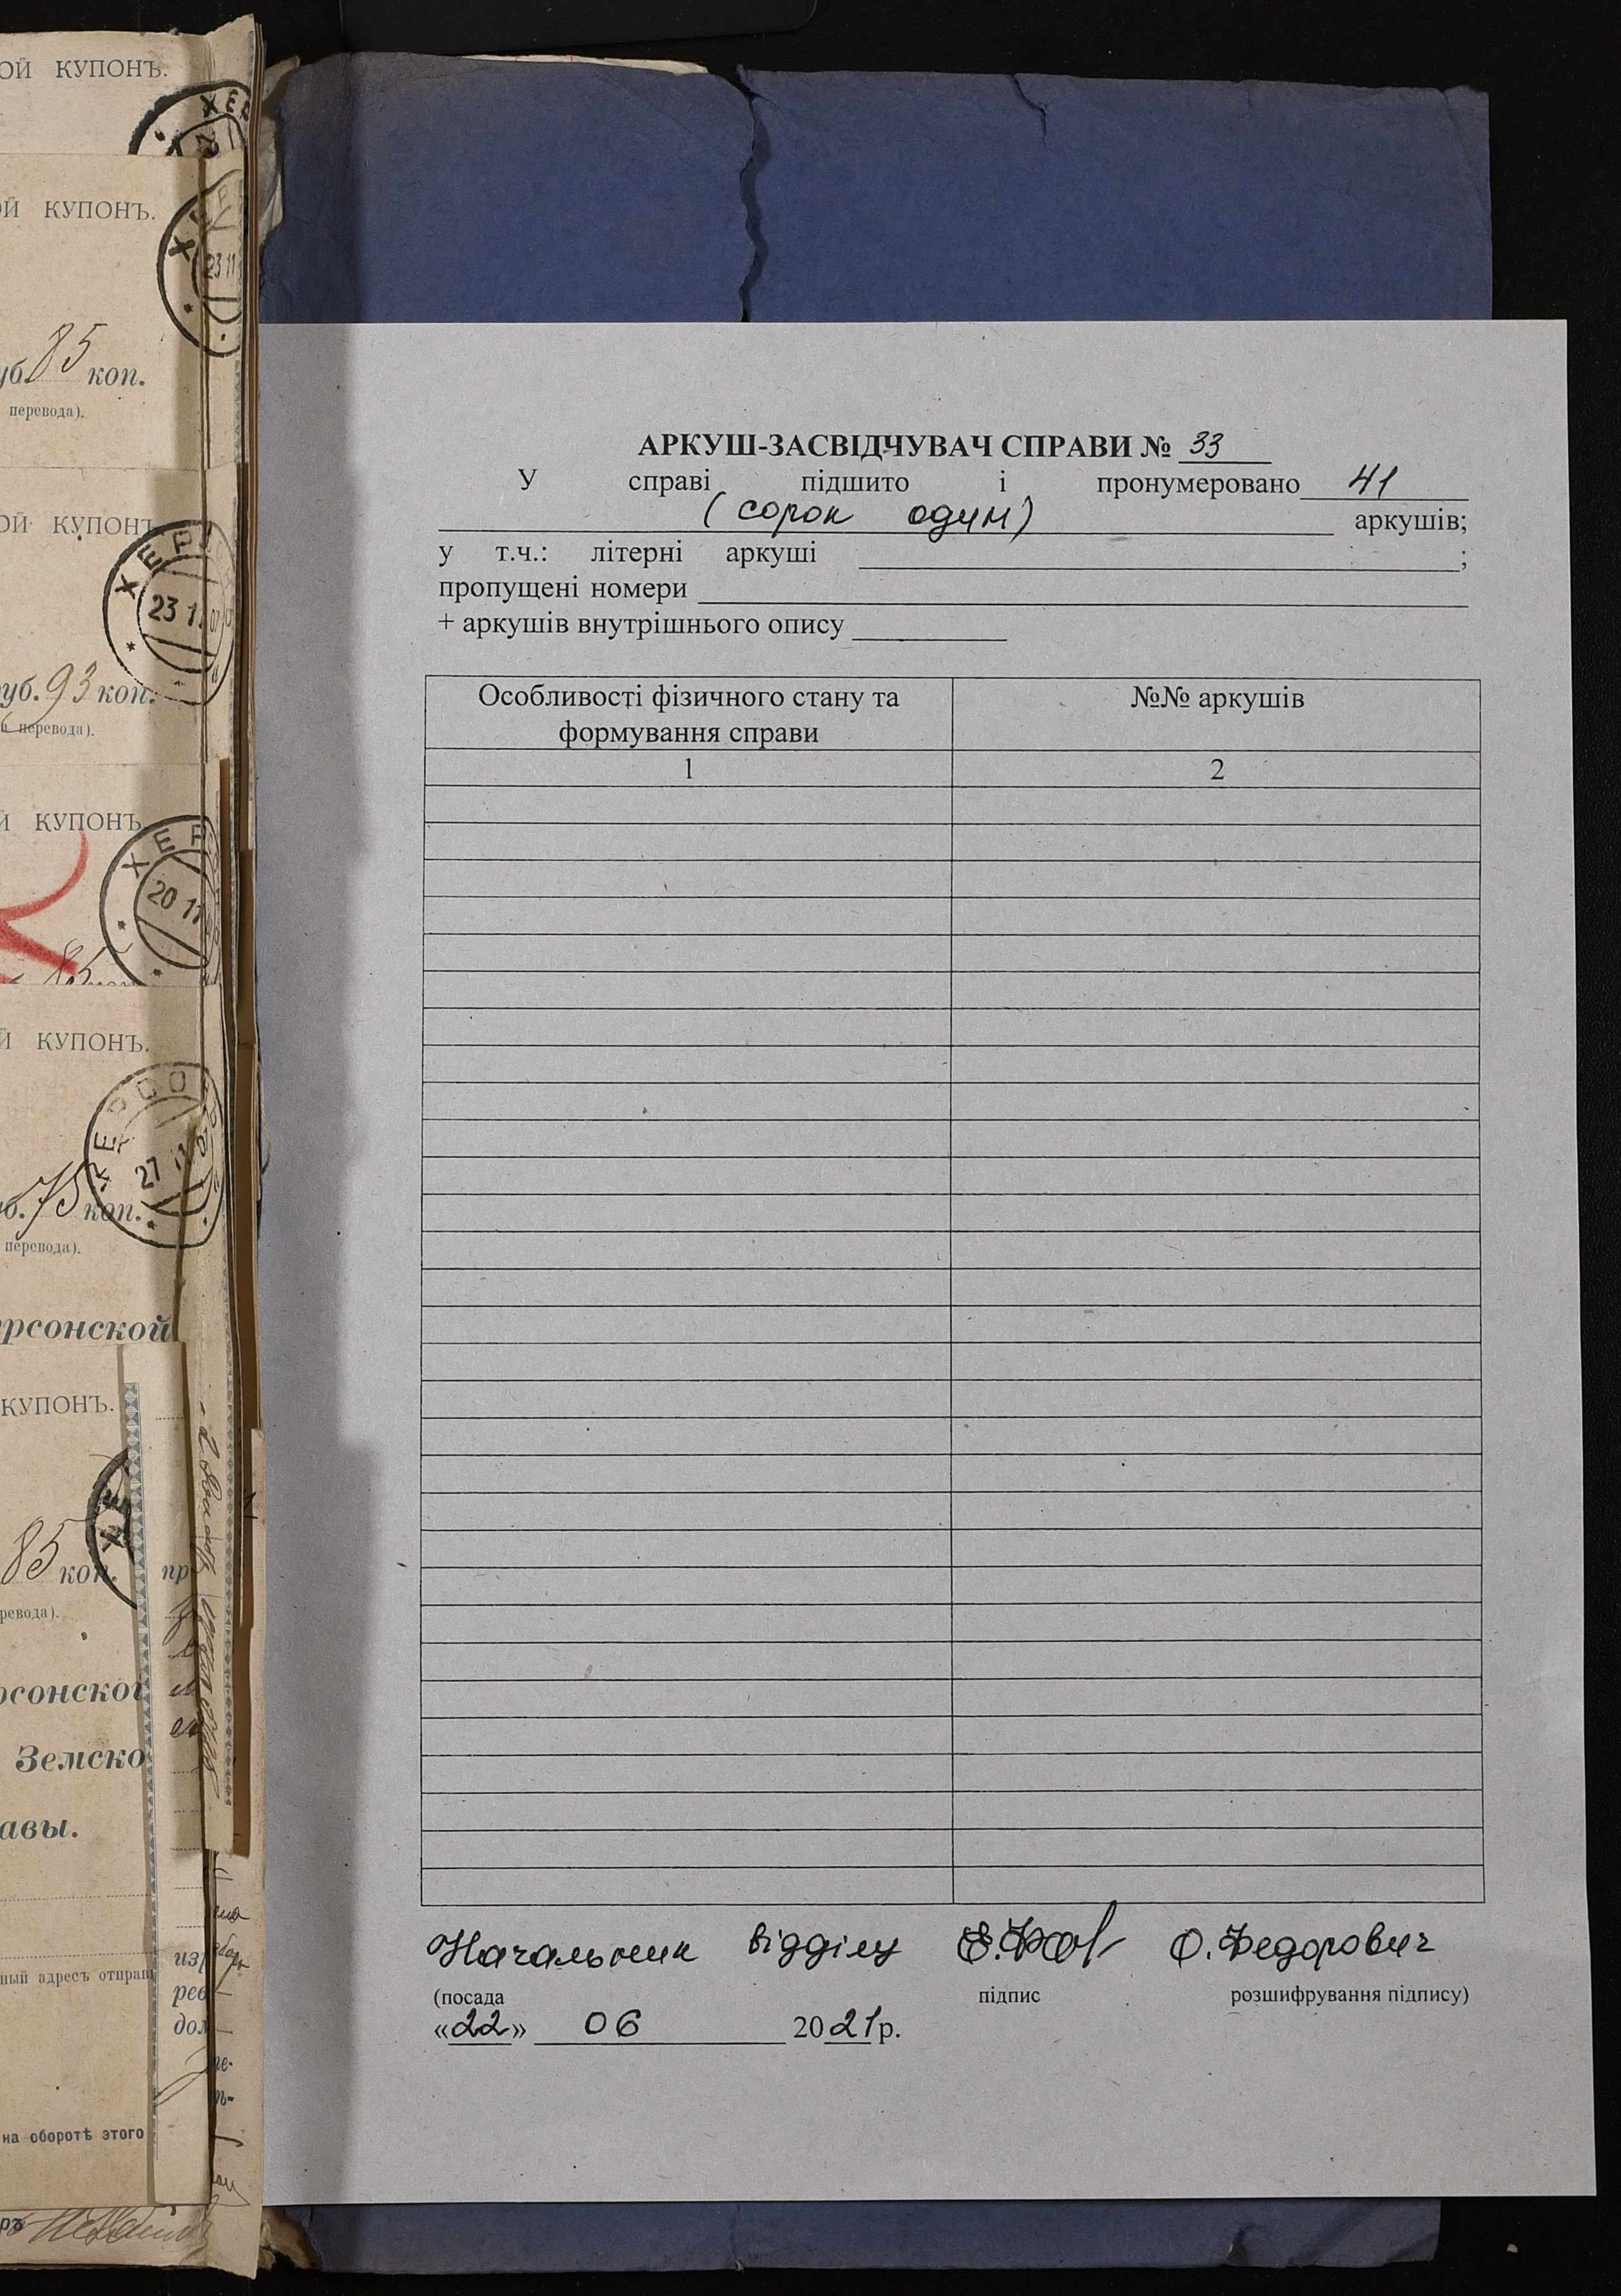 ОЙ КУПОНЪ.
ХЕР
ОЙ КУПОНЪ.
23 11
уб. 85 коп.
перевода).
ОЙ КУПОНЪ
ХЕР
23 1
уб. 93 коп.
перевода).
Й КУПОНЪ
ХЕР
20 11
85
Й КУПОНЪ.
ХЕРСОН
27
б. 75 коп.
перевода).
ерсонской
КУПОНЪ.
ХЕ
85 коп.
ревода).
пр
рсонской
Земско
авы.
ный адресъ отправ
на оборотѣ этого
АРКУШ-ЗАСВІДЧУВАЧ СПРАВИ № 33
У справі підшито і пронумеровано 41
(сорок один) аркушів;
у т.ч.: літерні аркуші ;
пропущені номери
+ аркушів внутрішнього опису
Особливості фізичного стану та формування справи
№№ аркушів
1 2
Начальник відділу О.Федорович
(посада підпис розшифрування підпису)
«22» 06 2021р.